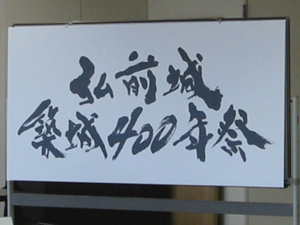 弘前城
築城400年祭